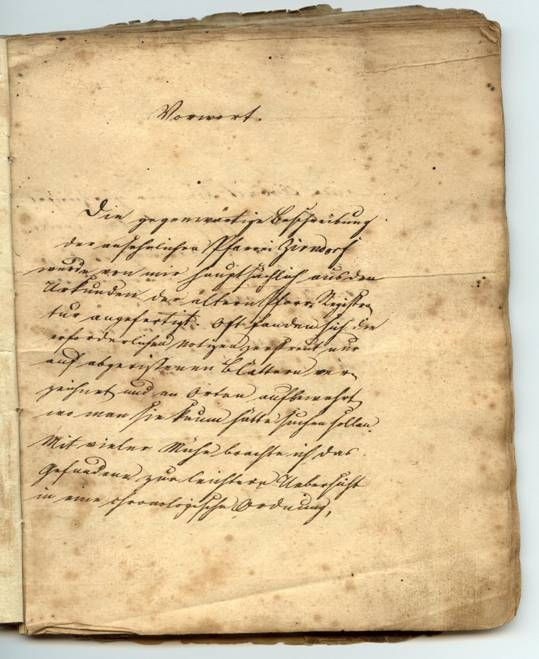 Vorwort.
Die gegenwärtige Beschreibung
der ansehnlichen Pfarrei Zirndorf
wurde von mir hauptsächlich aus den
Urkunden der ältern Pfarr-Registra
tur angefertigt. Oft fanden sich die
erforderlichen Notizen zerstreut nur
auf abgerissenen Blättern ver-
zeichnet und an Orten aufbewahrt,
wo man sie kaum hätte suchen sollen.
Mit vieler Mühe brachte ich das
Gefundene zur leichtern Uebersicht
in eine chronologische Ordnung,